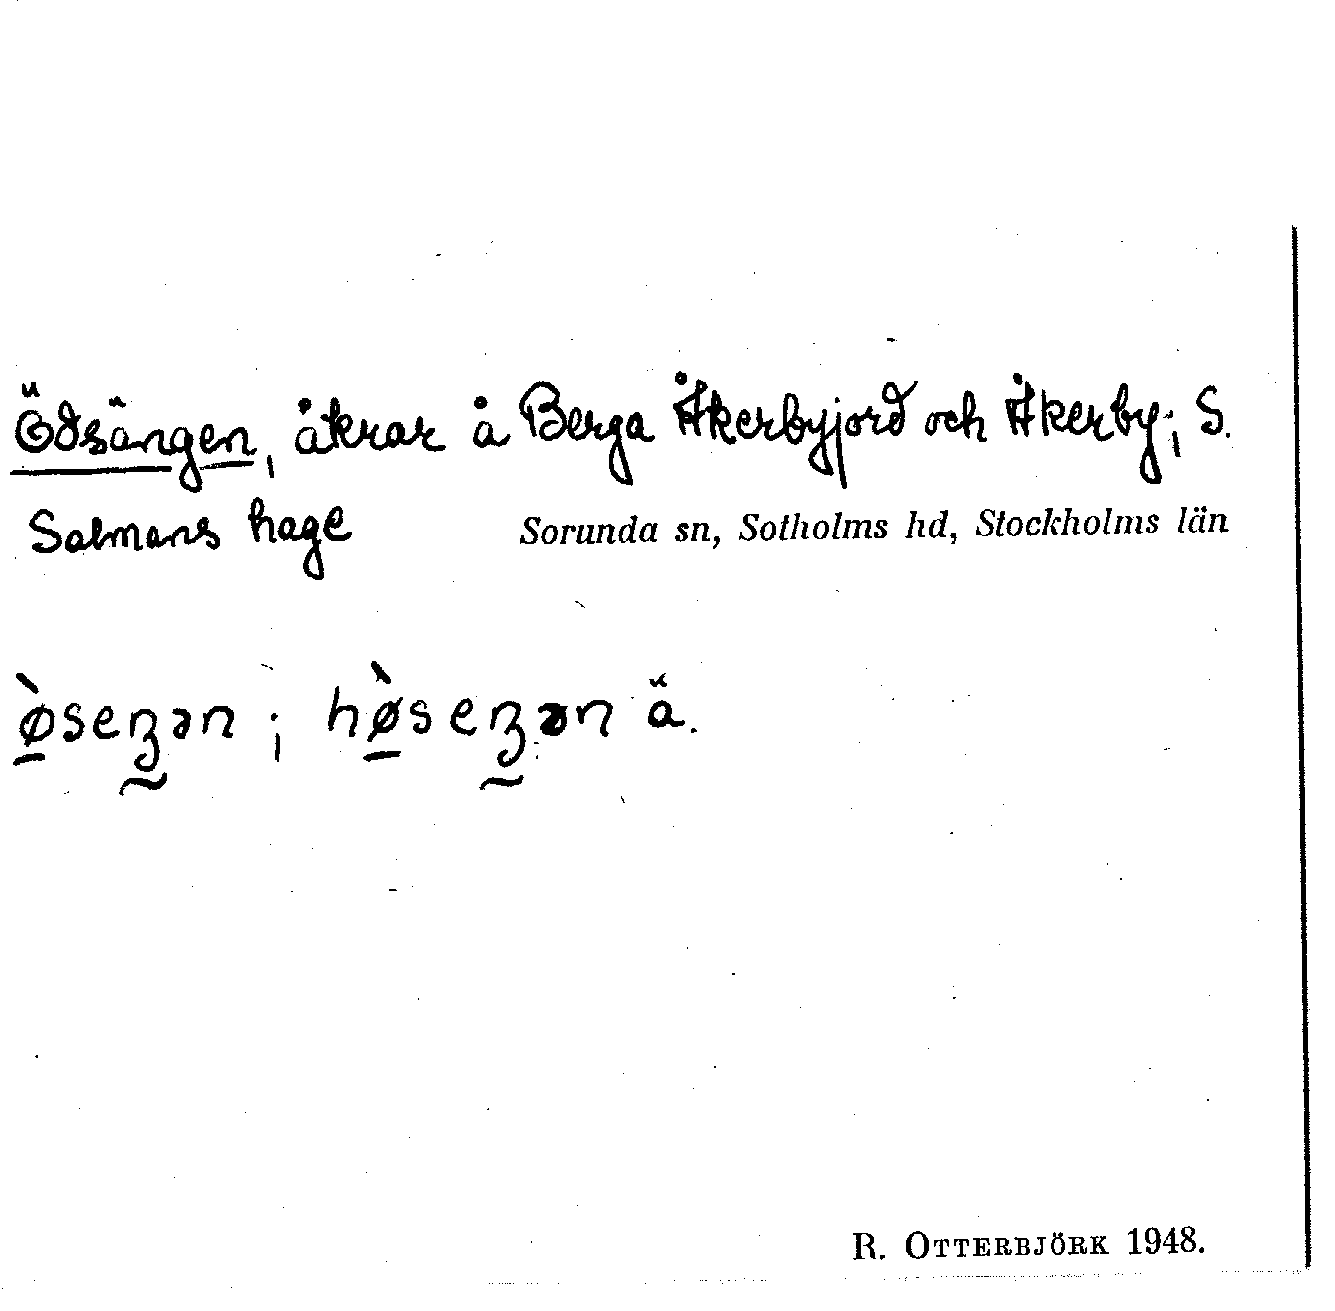 Ödsängen, åkrar å Berga Åkerbyjord och Åkerby; S.
Salmans hage Sorunda sn, Sotholms hd, Stockholms län
ø̠̀seŋən; hø̠̀seŋən ä.
R. OTTERBJÖRK 1948.